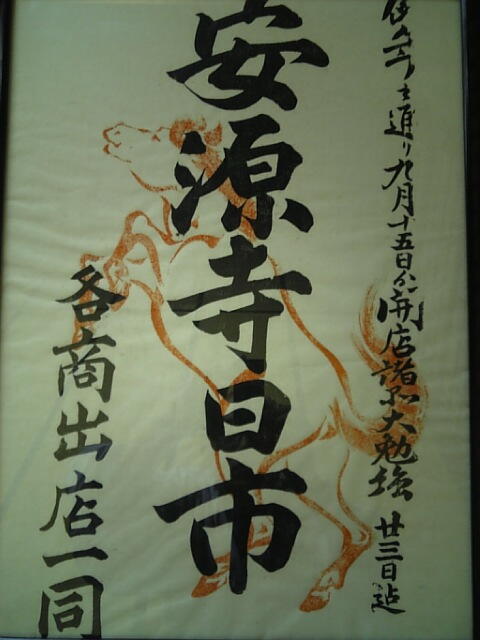 通り九月十五日ゟ開店諸品大勉強 廿三日迠
安源寺日市
各商出店一同